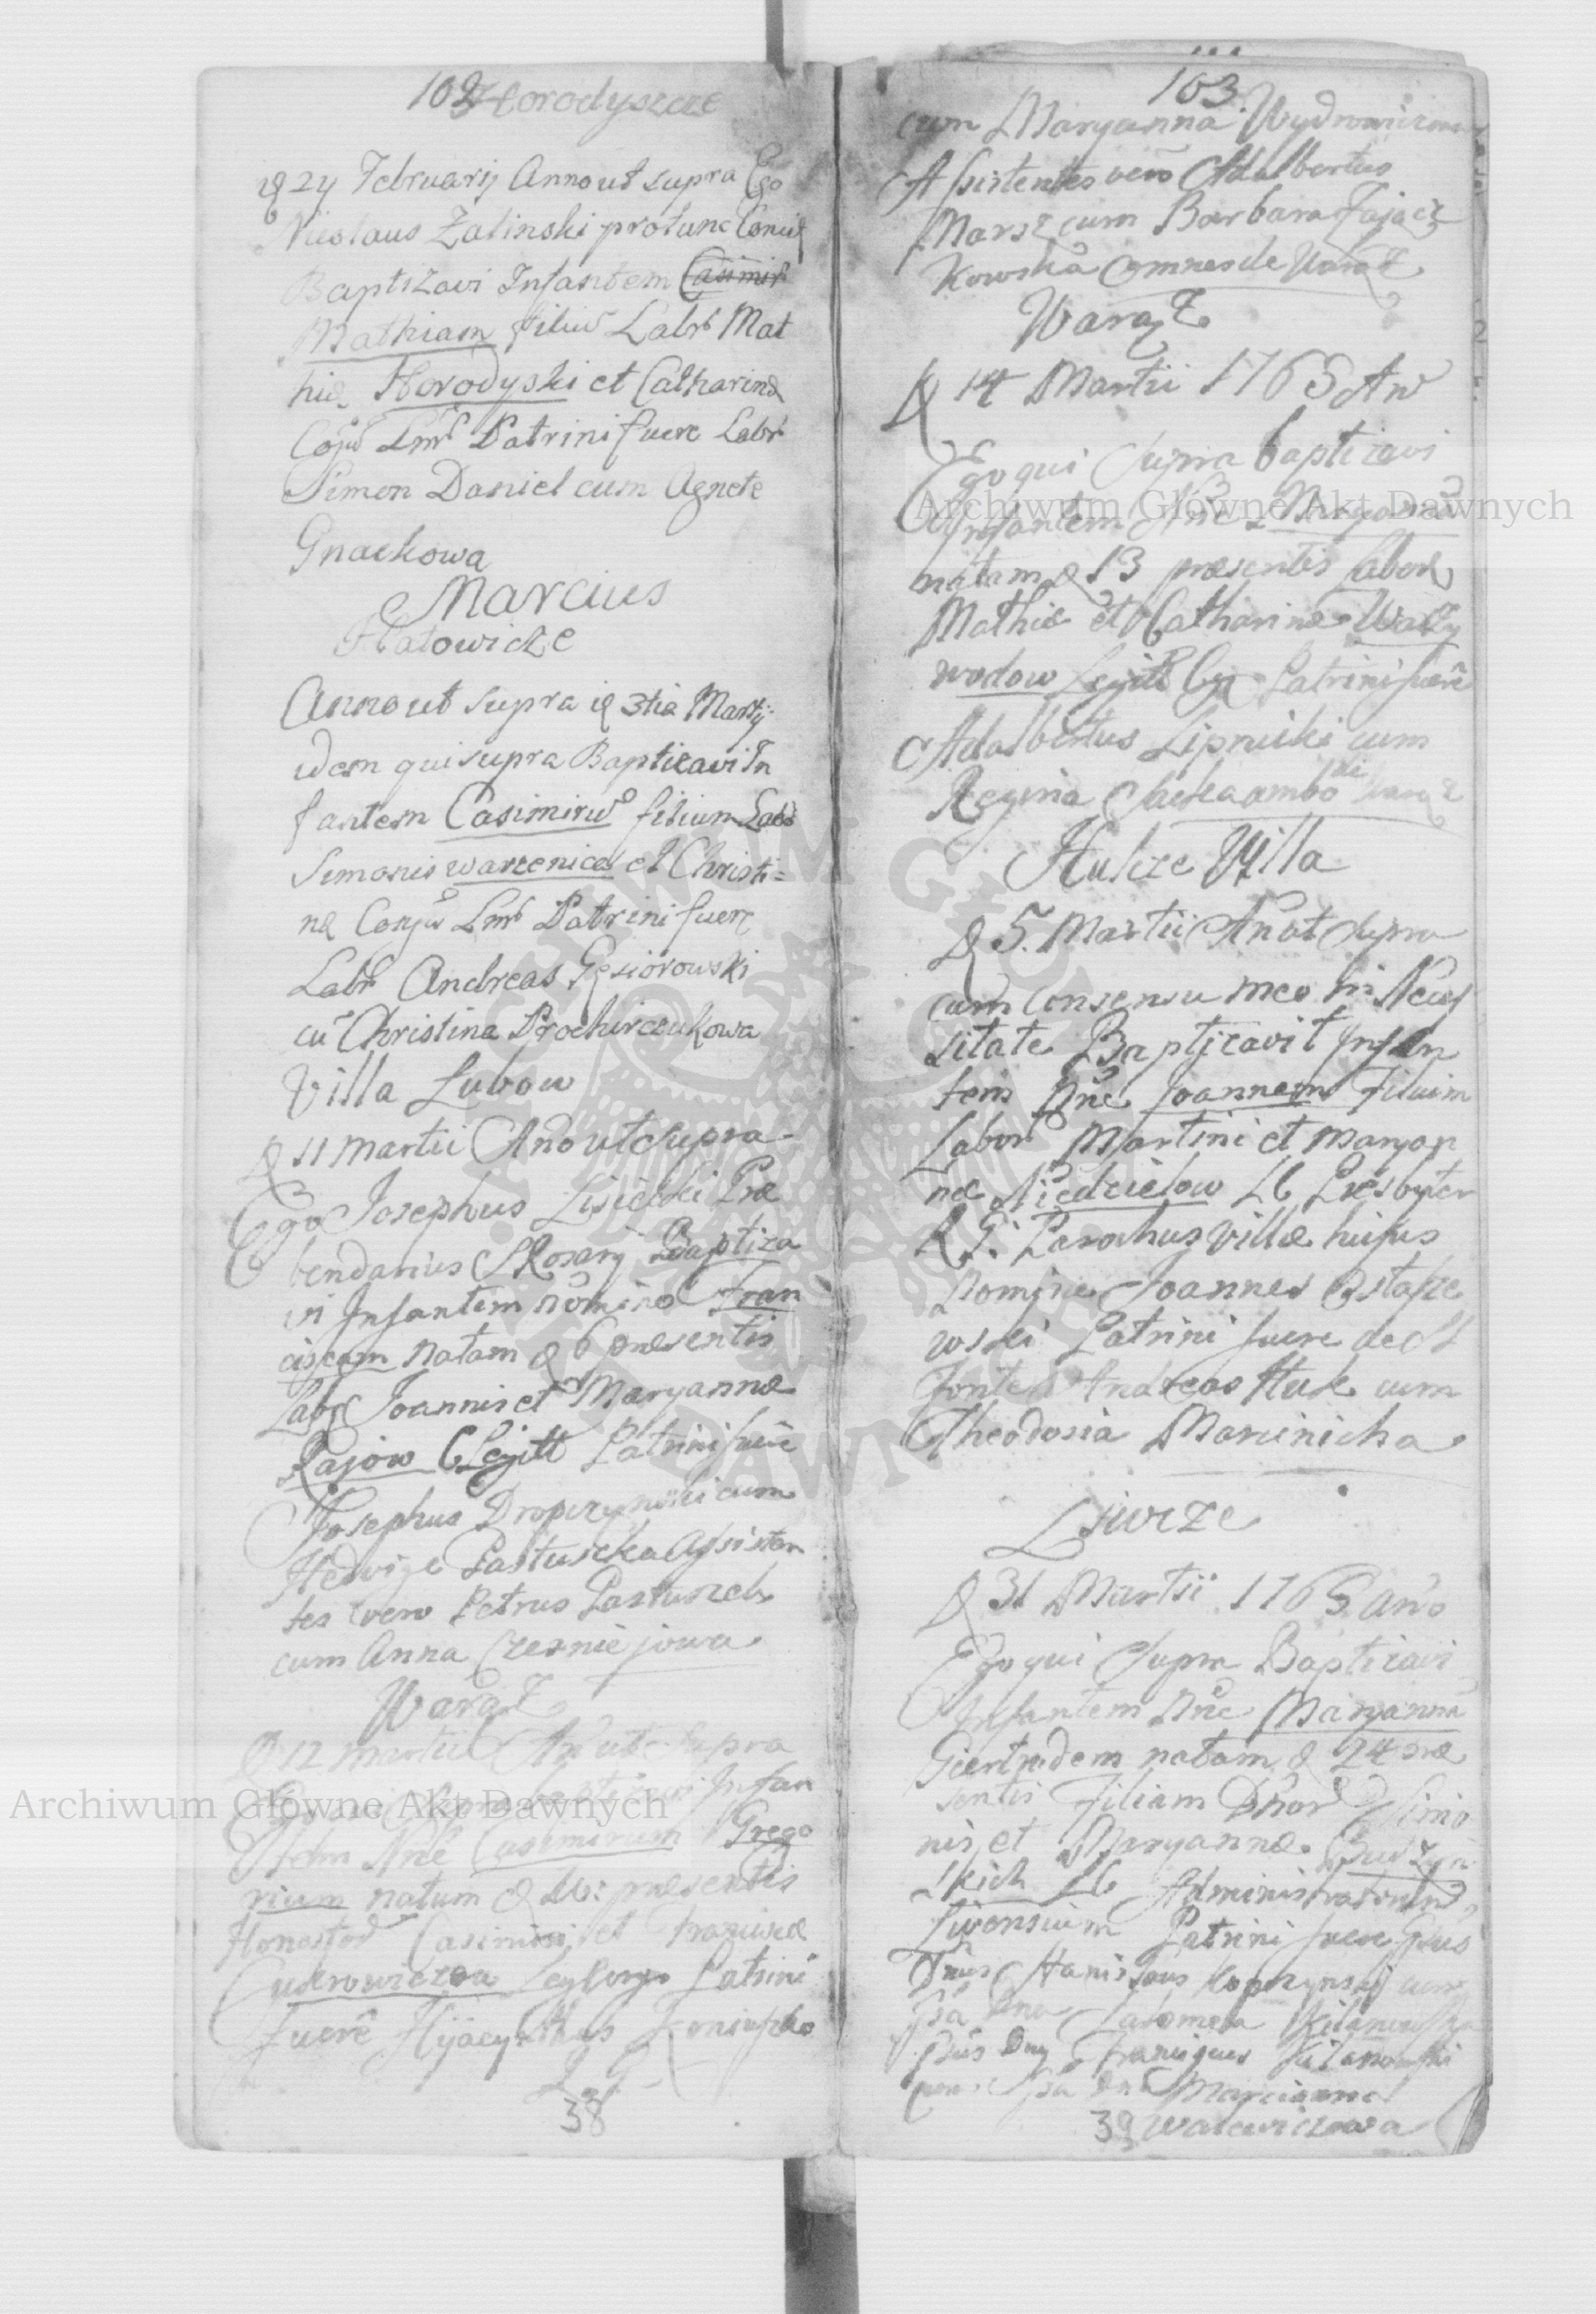 102 Horodyszcze
24 February Anno ut supra Ego
Nicolaus Zalinski protunc
Baptizavi Infantem Casimir
Mathiam filiu Labr Mat
hiæ Horodyski et Catharinæ
Conju Lmr Patrini fuere Labr
Simon Daniel cum Agnete
Gnackowa
Marcius
Hatowicze
Anno ut supra 3tia Martij
idem qui supra Baptizavi In
fantem Casimiru filium Labr
Simonis warzenica et Christi=
næ Conju Lmr Patrini fuere
Labr Andreas Gęsiorowski
cu Christina Prochirczukowa
Villa Lubow
D 11 martii Ano ut Supra
Ego Josephus Lisiecki Præ
bendarius S Rosarij Baptiza
vi Infantem nomine Fran
ciscam natam d 6 præsentis
Labr Joannis et Maryannæ
Rajow C Legitt Patrini fuere
Josephus Dropczynski cum
Hedvige Pastuszka Assisten
tes vero Petrus Pastuszek
cum Anna Czesnie jowa
Waręż
D 12 martii Ano ut Supra
Ego qui Supra baptizavi Infan
tem Nne Casimirum Grego
rium natum d præsentis
Honestor Casimiri et Franciscæ
Cukrowiczow Patrini
Fuere Hijacynthus
38
103
cum Maryanna
Assistentes vero Adalbertus
Marsz cum Barbara Zając
kowska omnes de Waręż
Waręż
D 14 Martii 1763 An
Ego qui Supra baptizavi
Infantem Nne Maryannã
natam d 13 præsentis Labor
Mathiæ et Catharinæ
wodow Legitt Cj Patrini fuere
Adalbertus Lipnicki cum
Regina ambo de Waręż
Hulcze Villa
D 5. Martii An ut Supra
cum Consensu meo in Neces
sitate Baptizavit Infan
tem Nne Joannem Filium
Labor Martini et Maryan
næ Niedzielow LC Presbyter
R G: Parochus Villæ hujus
Nomine Joannes Ostasze
wski Patrini fuere de S
Fonte Andreas Huk cum
Theodosia Marcinicha
Liwcze
D 31 Martii 1763 ano
Ego qui Supra Baptizavi
Infantem Nne Maryannã
Giertrudem natam d 24 præ
sentis Filiam Dnor Simo
nis et Maryannæ
skich LC Administratorum
Livensium Patrini fuere Gsus
Dnus Stanislaus Kopczynski cum
Gsa Dna Salomea
Gsus Dnus Franciscus
cum Gsa Dna Maryanna
39 Walewiczowa
Archiwum Główne Akt Dawnych
Archiwum Główne Akt Dawnych
ARCHIWUM GŁÓWNE AKT DAWNYCH